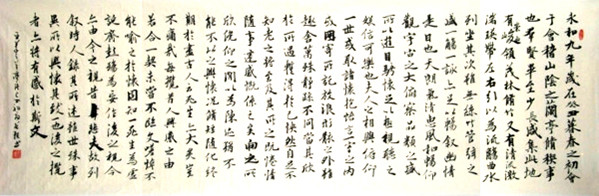 永和九年歲在癸丑暮春之初會
于會稽山陰之蘭亭脩稧事
也群賢畢至少長咸集此地
有崇山峻領茂林脩竹又有清流激
湍暎帶左右引以為流觴曲水
列坐其次雖無絲竹管絃之
盛一觴一詠亦足以暢叙幽情
是日也天朗氣清惠風和暢仰
觀宇宙之大俯察品類之盛
所以遊目騁懷足以極視聽之
娛信可樂也夫人之相與俯仰
一世或取諸懷抱悟言一室之內
或因寄所託放浪形骸之外雖
趣舍萬殊靜躁不同當其欣
於所遇暫得於己怏然自足不
知老之將至及其所之既惓情
隨事遷感慨係之矣向之所
欣俛仰之間以為陳迹猶不
能不以之興懷況脩短隨化終
期於盡古人云死生亦大矣豈
不痛哉每攬昔人興感之由
若合一契未嘗不臨文嗟悼不
能喻之於懷固知死生為虛
誕齊彭殤為妄作後之視今
亦由今之視昔悲夫故列
叙時人錄其所述雖世殊事
異所以興懷其致一也後之攬
者亦將有感於斯文